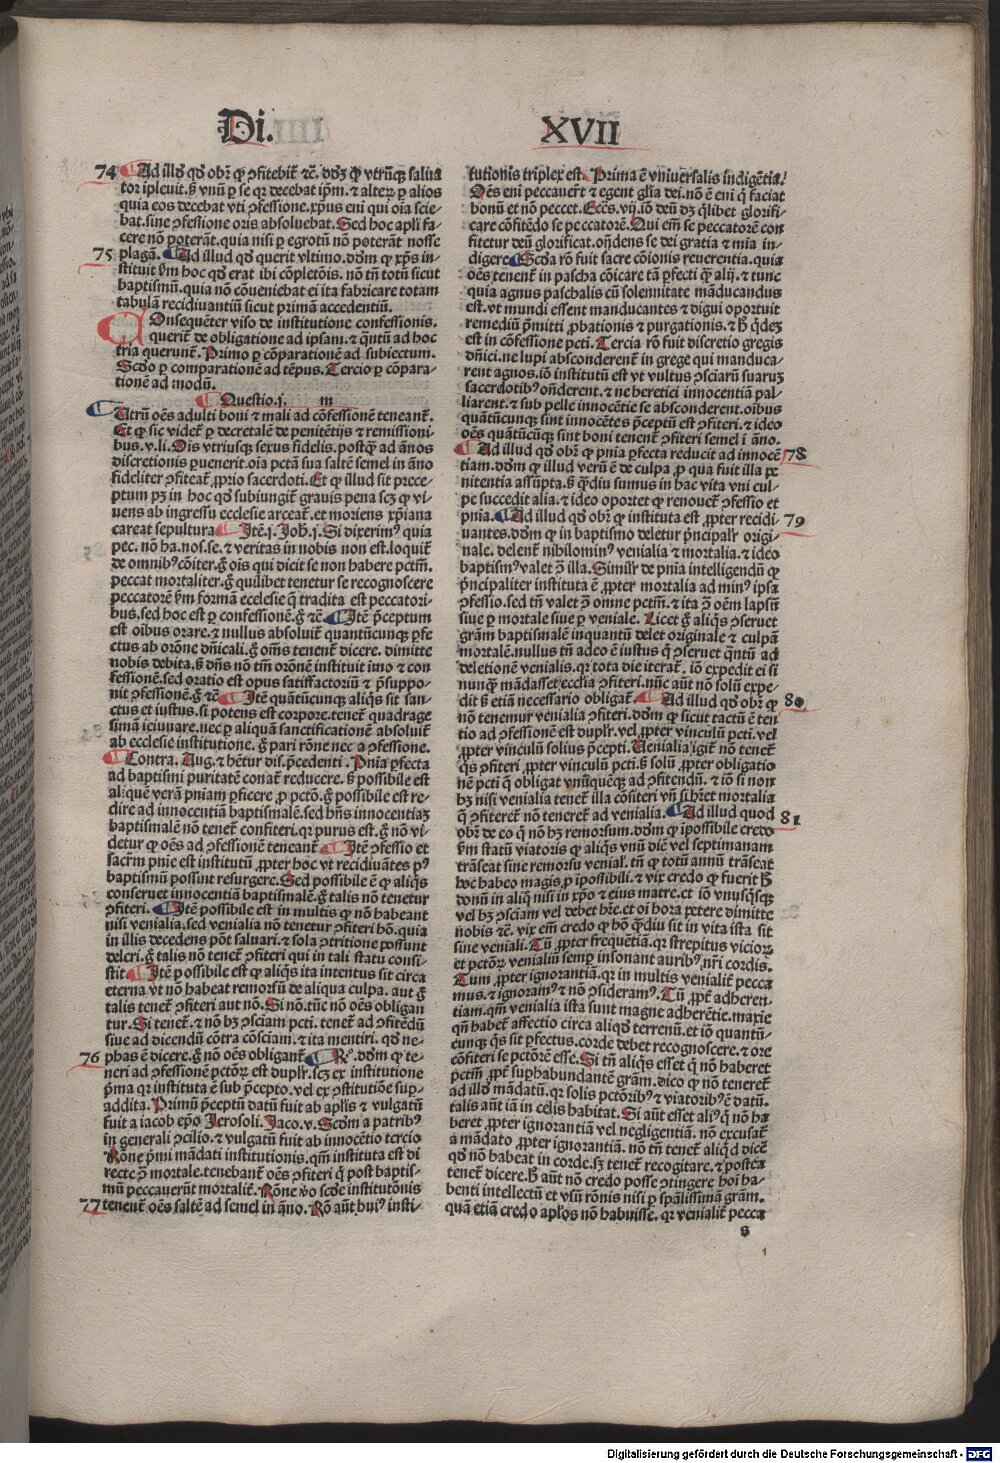 Di.
XVII
74 Ad illḋ qḋ obr̃ ꝙ ꝯfitebit̃ ⁊c̃. ḋdʒ ꝙ vtrũqꝫ saluator
tor ĩpleuit. s̃ vnũ ꝑ se qr̃ decebat ip̃m. ⁊ alterꝝ ꝑ alios
quia eos decebat vti ꝓfessione. xp̃us eni qui oĩa scie-
bat. sine ꝯfessione oris absoluebat. Sed hoc apl̃i fa-
cere nõ poterãt. quia nisi ꝑ egrotũ nõ poterãt nosse
75 plagã. Ad illud qḋ querit vltimo. dõm ꝙ xp̃s in-
stituit ẜm hoc qḋ erat ibi cõpletõis. nõ tñ totũ sicut
baptismũ. quia nõ cõueniebat ei ita fabricare totam
tabulã recidiuantiũ sicut primã accedentiũ.
Consequẽter viso de institutione confessionis.
querit̃ de obligatione ad ipsam. ⁊ q̃ntũ ad hoc
tria querunt̃. Primo ꝑ cõparationẽ ad subiectum.
Scḋo ꝑ comparationẽ ad tẽpus. Tercio ꝑ cõpara-
tionẽ ad modũ.
Questio. j. m
Utrũ oẽs adulti boni ⁊ mali ad cõfessionẽ teneant̃.
Et ꝙ sic videt̃ ꝑ decretalẽ de penitẽtijs ⁊ remissioni
bus. v. li. Ois vtriusqꝫ sexus fidelis. postq̃ ad ãnos
discretionis ꝑuenerit. oĩa pctã sua saltẽ semel in ãno
fideliter ꝯfiteat̃ ꝓprio sacerdoti. Et ꝙ illud sit prece-
ptum pʒ in hoc qḋ subiungit̃ grauis pena scʒ ꝙ vi-
uens ab ingressu ecclesie arceat̃. et moriens xp̃iana
careat sepultura Itẽ. j. Joh. j. Si dixerimꝰ quia
pec. nõ ha. nos. se. ⁊ veritas in nobis non est. loquit̃
de omnibꝰ cõiter. g̃ ois qui dicit se non habere pctm̃.
peccat mortaliter. g̃ quilibet tenetur se recognoscere
peccatorẽ ẜm formã ecclesie q̃ tradita est peccatori-
bus. sed hoc est ꝑ confessionẽ. g̃ ⁊c̃ Itẽ p̃ceptum
est oĩbus orare. ⁊ nullus absoluit̃ quantũcunqꝫ ꝑfe
ctus ab orõne dñicali. g̃ om̃s tenent̃ dicere. dimitte
nobis debita. s̃ dñs nõ tm̃ orõnẽ instituit ĩmo ⁊ con
fessionẽ. sed oratio est opus satisfactoriũ ⁊ p̃suppo-
nit ꝯfessionẽ. g̃ ⁊c̃ Itẽ quãtũcunqꝫ aliq̃s sit san-
ctus et iustus. si potens est corpore. tenet̃ quadrage
simã ieiunare. nec ꝑ aliquã sanctificationẽ absoluit̃
ab ecclesie institutione. g̃ pari rõne nec a ꝯfessione.
Contra. Aug. ⁊ hẽtur dis. p̃cedenti. Pñia ꝑfecta
ad baptismi puritatẽ conat̃ reducere. s̃ possibile est
aliquẽ verã pñiam ꝑficere ꝓ pctõ. g̃ possibile est re-
dire ad innocentiã baptismalẽ. sed hñs innocentiaʒ
baptismalẽ nõ tenet̃ confiteri. qr̃ purus est. g̃ nõ vi-
detur ꝙ oẽs ad ꝯfessionẽ teneant̃ Itẽ ꝯfessio et
sacr̃m pñie est institutũ ꝓpter hoc vt recidiuãtes pꝰ
baptismũ possint resurgere. Sed possibile ẽ ꝙ aliq̃s
conseruet innocentiã baptismalẽ. g̃ talis nõ tenetur
ꝯfiteri. Itẽ possibile est in multis ꝙ nõ habeant
nisi venialia. sed venialia nõ tenetur ꝯfiteri hõ. quia
in illis decedens põt saluari. ⁊ sola ꝯtritione possunt
deleri. g̃ talis nõ tenet̃ ꝯfiteri qui in tali statu consi-
stit Itẽ possibile est ꝙ aliq̃s ita intentus sit circa
eterna vt nõ habeat remorsũ de aliqua culpa. aut g̃
talis tenet̃ ꝯfiteri aut nõ. Si nõ. tũc nõ oẽs obligan
tur. Si tenet̃. ⁊ nõ hʒ ꝯsciam pcti. tenet̃ ad ꝯfitẽdũ
siue ad dicendũ cõtra cõsciam. ⁊ ita mentiri. qḋ ne-
76 phas ẽ dicere. g̃ nõ oẽs obligant̃ Rº. dõm ꝙ te-
neri ad ꝯfessionẽ pctõꝝ est duplr̃. scʒ ex institutione
p̃ma qr̃ instituta ẽ sub p̃cepto. vel ex ꝯstitutiõe suꝑ-
addita. Primũ p̃ceptũ datũ fuit ab apl̃is ⁊ vulgatũ
fuit a iacob ep̃o Jerosoli. Jaco. v. Scḋm a patribꝰ
in generali ꝯcilio. ⁊ vulgatũ fuit ab innocẽtio tercio
Rõne p̃mi mãdati institutionis. qm̃ instituta est di
recte ꝯ mortale. tenebant̃ oẽs ꝯfiteri q̃ post baptis-
mũ peccauerũt mortalit̃. Rõne ṽo scḋe institutõnis
77 tenent̃ oẽs saltẽ ad semel in ãno. Rõ aũt huiꝰ insti-
tutionis triplex est. Prima ẽ vniuersalis indigẽtia.
Oẽs eni peccauer̃t ⁊ egent gl̃ia dei. nõ ẽ eni q̃ faciat
bonũ et nõ peccet. Ecc̃s. vij. iõ deũ dʒ q̃libet glorifi-
care cõfitẽdo se peccatorẽ. Qui em̃ se peccatorẽ con
fitetur deũ glorificat. oñdens se dei gratia ⁊ mĩa in-
digere Scḋa rõ fuit sacre cõionis reuerentia. quia
oẽs tenent̃ in pascha cõicare tã ꝑfecti q̃ alij. ⁊ tunc
quia agnus paschalis cũ solennitate mãducandus
est. vt mundi essent manducantes ⁊ digni oportuit
remediũ p̃mitti ꝓbationis ⁊ purgationis. ⁊ h̃ q̃deʒ
est in cõfessione pcti. Tercia rõ fuit discretio gregis
dñici. ne lupi absconderent̃ in grege qui manduca-
rent agnos. iõ institutũ est vt vultus ꝯsciarũ suaruʒ
sacerdotibꝰ oñderent. ⁊ ne heretici innocentiã pal-
liarent. ⁊ sub pelle innocẽtie se absconderent. oibus
quãtũcunqꝫ sint innocẽtes p̃ceptũ est ꝯfiteri. ⁊ ideo
oẽs quãtũcũqꝫ sint boni tenent̃ ꝯfiteri semel ĩ ãno.
Ad illud qḋ obr̃ ꝙ pñia ꝑfecta reducit ad innocẽ 78
tiam. dõm ꝙ illud verũ ẽ de culpa ꝓ qua fuit illa pe
nitentia assũpta. s̃ q̃diu sumus in hac vita vni cul-
pe succedit alia. ⁊ ideo oportet ꝙ renouet̃ ꝯfessio et
pñia. Ad illud qḋ obr̃ ꝙ instituta est ꝓpter recidi- 79
uantes. dõm ꝙ in baptismo deletur p̃ncipalr̃ origi-
nale. delent̃ nihilominꝰ venialia ⁊ mortalia. ⁊ ideo
baptismꝰ valet ꝯ illa. Similr̃ de pñia intelligendũ ꝙ
p̃ncipaliter instituta ẽ ꝓpter mortalia ad minꝰ ipsa
ꝯfessio. sed tñ valet ꝯ omne pctm̃. ⁊ ita ꝯ oẽm lapsũ
siue ꝑ mortale siue ꝑ veniale. Licet g̃ aliq̃s ꝯseruet
gr̃am baptismalẽ inquantũ delet originale ⁊ culpã
mortalẽ. nullus tñ adeo ẽ iustus q̃ ꝯseruet q̃ntũ ad
deletionẽ venialis. qr̃ tota die iterat̃. iõ expedit ei si
nunq̃ mãdasset eccl̃ia ꝯfiteri. nũc aũt nõ solũ expe-
dit s̃ etiã necessario obligat̃. Ad illud qḋ obr̃ ꝙ 80
nõ tenemur venialia ꝯfiteri. dõm ꝙ sicut tactũ ẽ ten
tio ad ꝯfessionẽ est duplr̃. vel ꝓpter vinculũ pcti. vel
ꝓpter vinculũ solius p̃cepti. Uenialia igit̃ nõ tenet̃
q̃s ꝯfiteri ꝓpter vinculũ pcti. s̃ solũ ꝓpter obligatio
nẽ pcti q̃ obligat vnũquẽqꝫ ad ꝯfitendũ. ⁊ iõ si non
hʒ nisi venialia tenet̃ illa cõfiteri vñ si hr̃et mortalia
q̃ ꝯfiteret̃ nõ teneret̃ ad venialia. Ad illud quod 81
obr̃ de eo q̃ nõ hʒ remorsum. dõm ꝙ ĩpossibile credo
ẜm statũ viatoris ꝙ aliq̃s vnũ diẽ vel septimanam
trãseat sine remorsu venial̃. tñ ꝙ totũ annũ trãseat
hoc habeo magis ꝓ ĩpossibili. ⁊ vix credo ꝙ fuerit h̃
donũ in aliq̃ nisi in xp̃o ⁊ eius matre. et iõ vnusq̃sqꝫ
vel hʒ ꝯsciam vel debet hr̃e. et oĩ hora petere dimitte
nobis ⁊c̃. vix em̃ credo ꝙ hõ q̃diu sit in vita ista sit
sine veniali. Tũ ꝓpter frequẽtiã. qr̃ strepitus vicioꝝ
et pctõꝝ venialiũ semꝑ insonant auribꝰ nr̃i cordis.
Tum ꝓpter ignorantiã. qr̃ in multis venialit̃ pecca
mus. ⁊ ignoramꝰ ⁊ nõ ꝯsideramꝰ. Tũ ꝓpt̃ adheren-
tiam. qm̃ venialia ista sunt magne adherẽtie. maxie
qñ habet̃ affectio circa aliqḋ terrenũ. et iõ quantũ-
cunqꝫ q̃s sit ꝑfectus. corde debet recognoscere. ⁊ ore
cõfiteri se pctõrẽ esse. Si tñ aliq̃s esset q̃ nõ haberet
pctm̃ ꝓpt̃ suꝑhabundantẽ gr̃am. dico ꝙ nõ teneret̃
ad illḋ mãdatũ. qr̃ solis pctõribꝰ ⁊ viatoribꝰ ẽ datũ.
talis aũt iã in celis habitat. Si aũt esset aliꝰ q̃ nõ ha
beret ꝓpter ignorantiã vel negligentiã. nõ excusat̃
a mãdato ꝓpter ignorantiã. nõ tñ tenet̃ aliqḋ dicẽ
qḋ nõ habeat in corde. sʒ tenet̃ recogitare. ⁊ postea
tenet̃ dicere. h̃ aũt nõ credo posse ꝯtingere hoĩ ha-
benti intellectũ et vsũ rõnis nisi ꝑ sp̃alissimã gr̃am.
quã etiã credo apl̃os nõ habuisse. qr̃ venialit̃ pecca
s
Digitalisierung gefördert durch die Deutsche Forschungsgemeinschaft - DFG